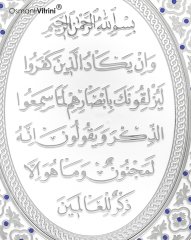 OsmanlıVitrini
بسم الله الرحمن الرحيم
وَاِنْ يَكَادُ الَّذِينَ كَفَرُوا
لَيُزْلِقُونَكَ بِاَبْصَارِهِمْ لَمَّا سَمِعُوا
الذِّكْرَ وَيَقُولُونَ اِنَّهُ
لَمَجْنُونٌ وَمَا هُوَ اِلَّا
ذِكْرٌ لِلْعَالَمِينَ